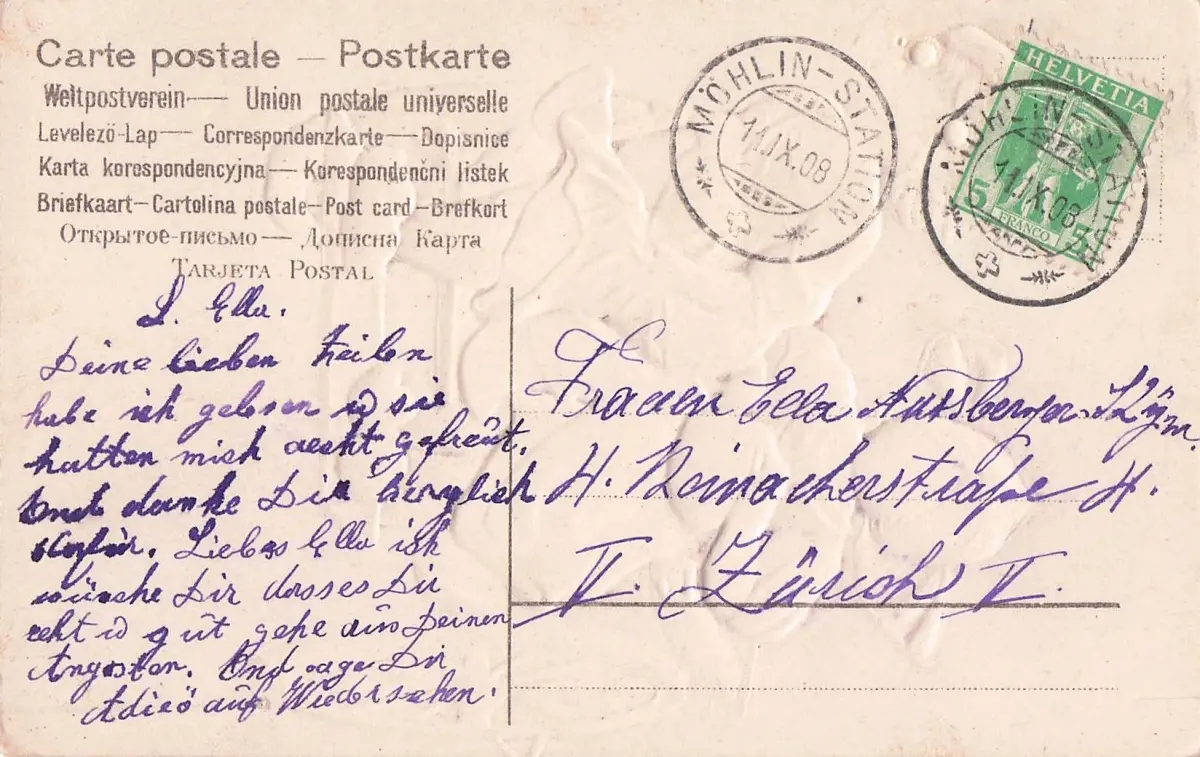 Carte postale — Postkarte
Weltpostverein — Union postale universelle
Levelező-Lap — Correspondenzkarte — Dopisnice
Karta korespondencyjna — Korespondenčni listek
Briefkaart — Cartolina postale — Post card — Brefkort
Открытое письмо — Дописна Карта
TARJETA POSTAL
MÖHLIN-STATION
11.IX.08
HELVETIA
5 FRANCO 5
MÖHLIN-STATION
11.IX.08
L. Ella.
Deine lieben Zeilen
habe ich gelesen u sie
hatten mich recht gefreut.
Und danke Dir herzlich
Liebes Ella ich
wünsche Dir dasses Dir
recht u gut gehe aus Deinen
Ängsten. Und sage Dir
Adieö auf Wiedersehen.
Frauen Ella Kÿm.
4. Reinacherstraße 4.
V. Zürich V.